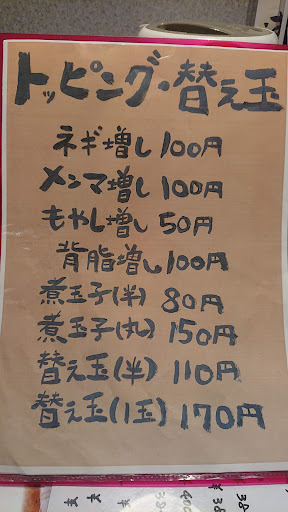 トッピング・替え玉
ネギ増し 100円
メンマ増し 100円
もやし増し 50円
背脂増し 100円
煮玉子(半) 80円
煮玉子(丸) 150円
替え玉(半) 110円
替え玉(1玉) 170円